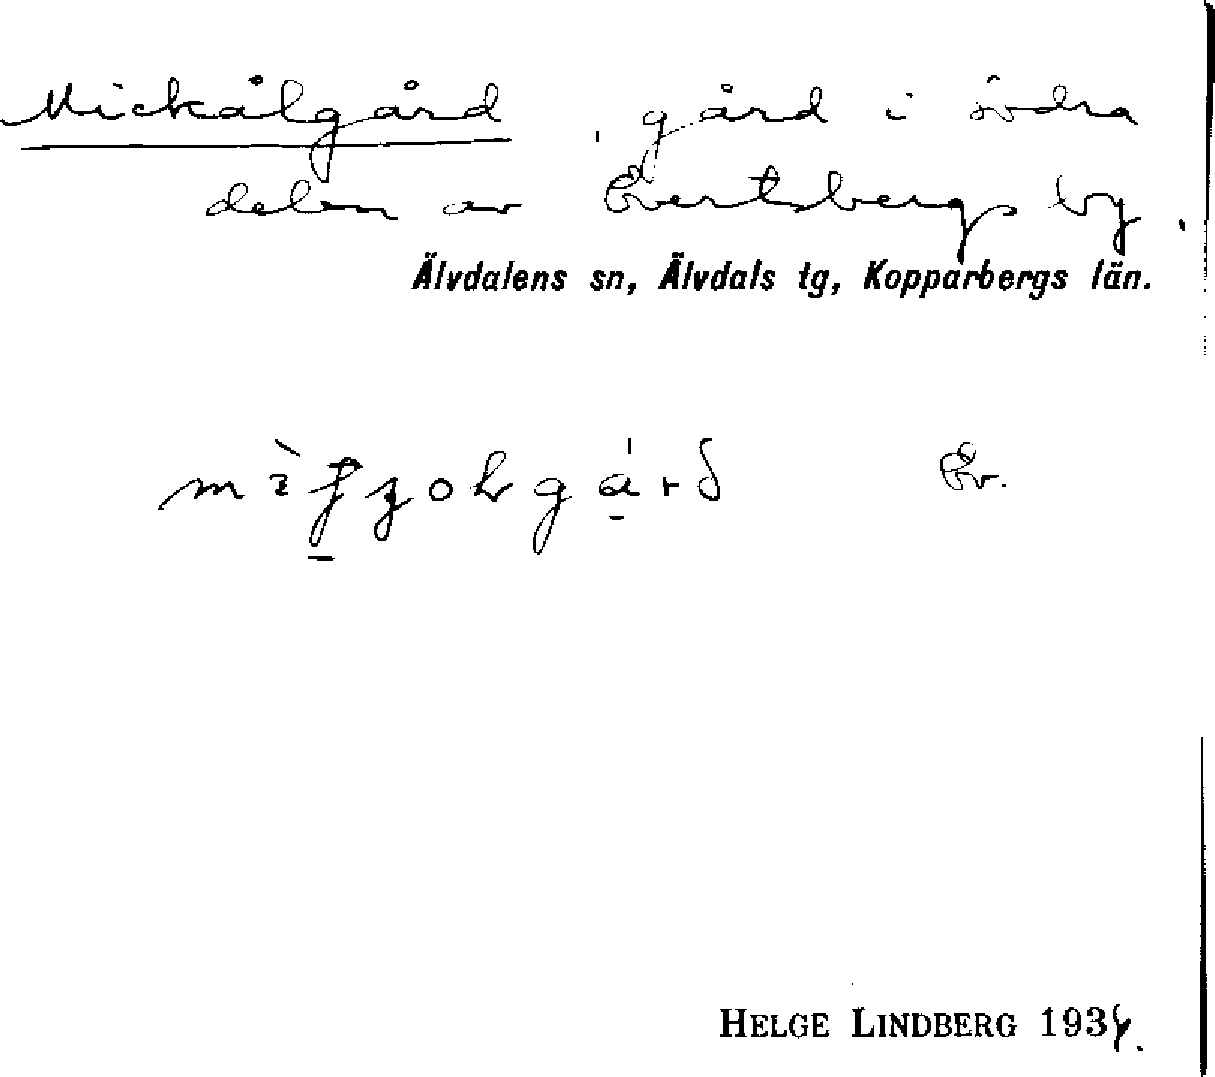 Mickålgård, gård i södra
delen av Evertsbergs by.
Älvdalens sn, Älvdals tg, Kopparbergs län.
Ev.
HELGE LINDBERG 1934.